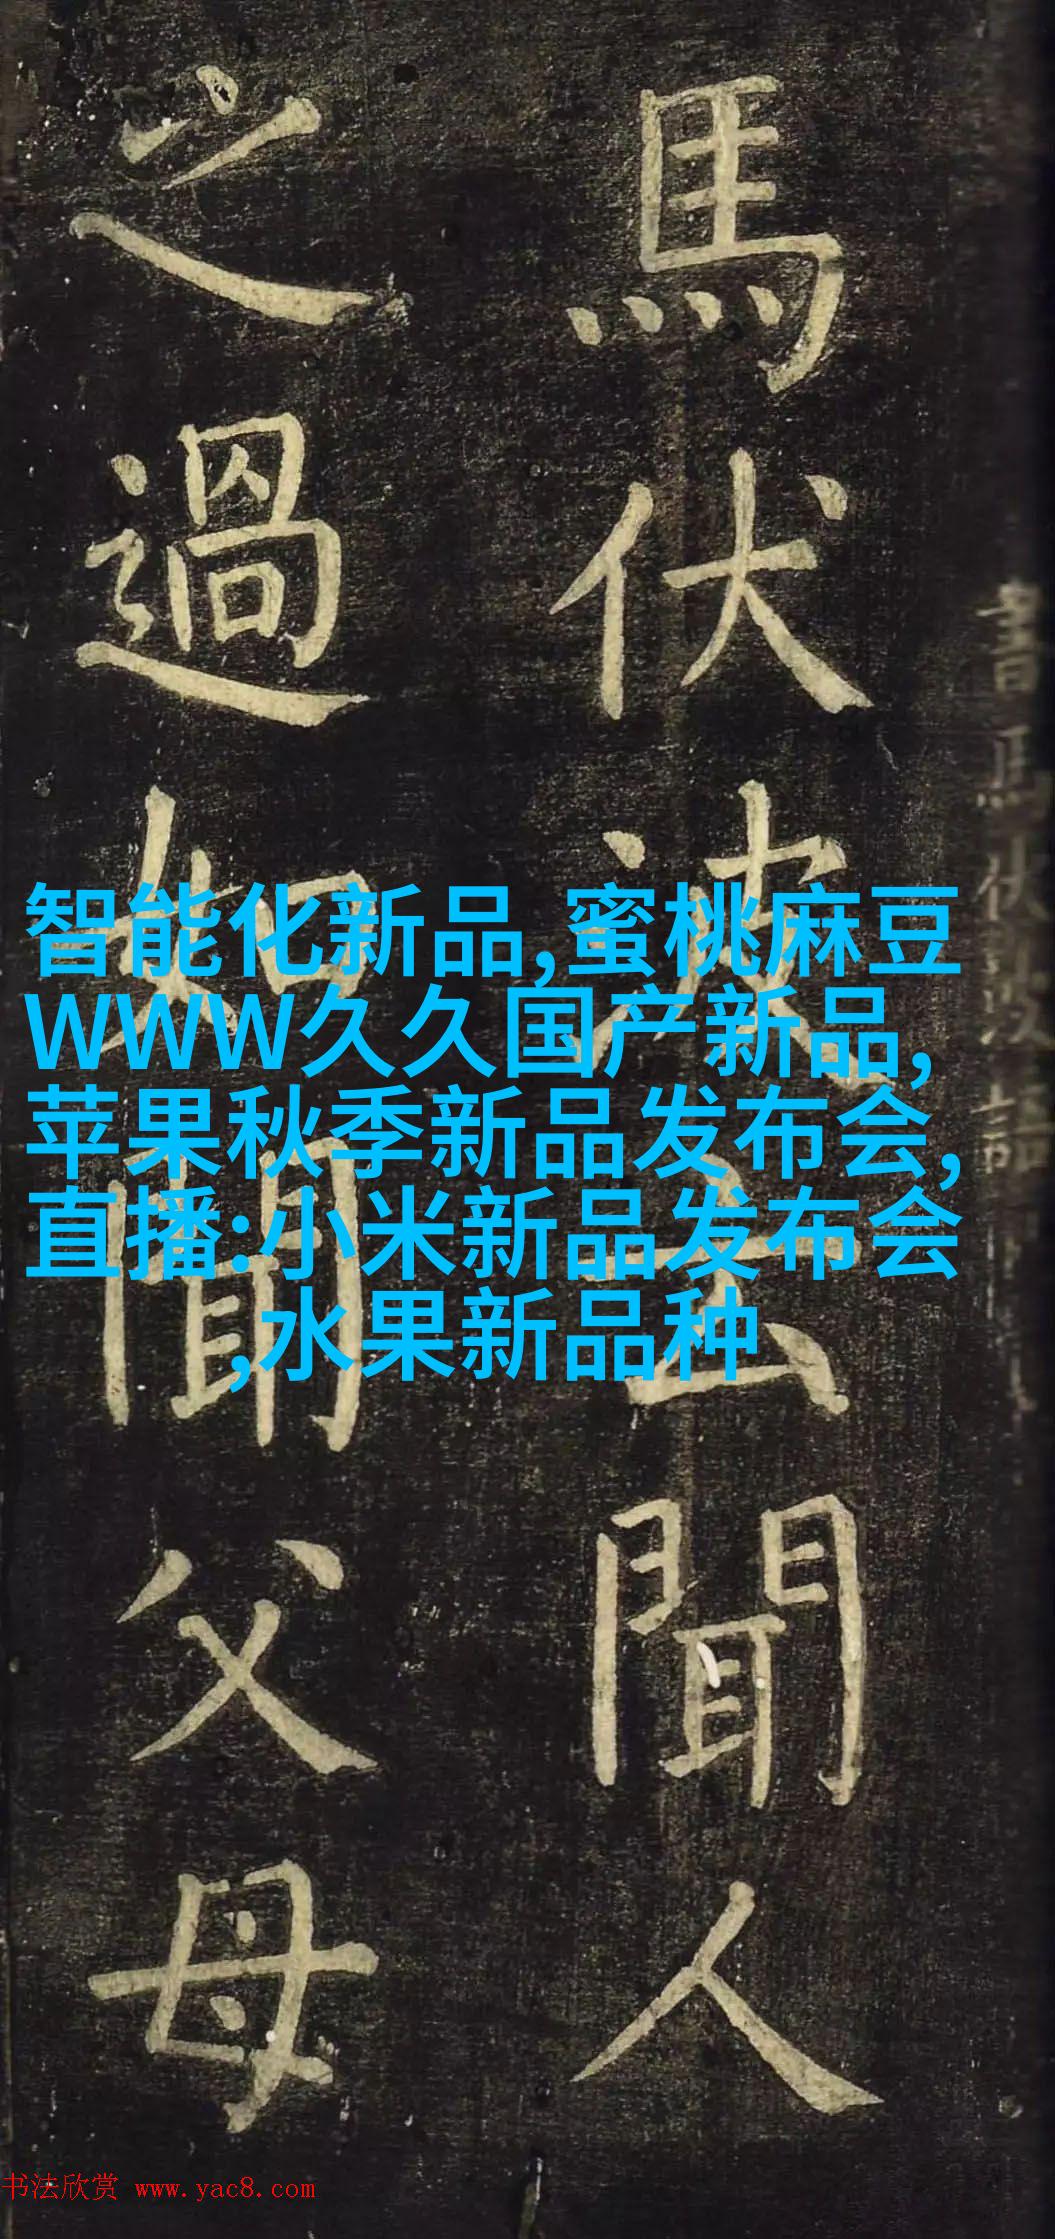 書馬伏波語
馬伏波云聞人
之過如聞父母
智能化新品,蜜桃麻豆
WWW久久国产新品,
苹果秋季新品发布会,
直播:小米新品发布会
,水果新品种
书法欣赏 www.yac8.com